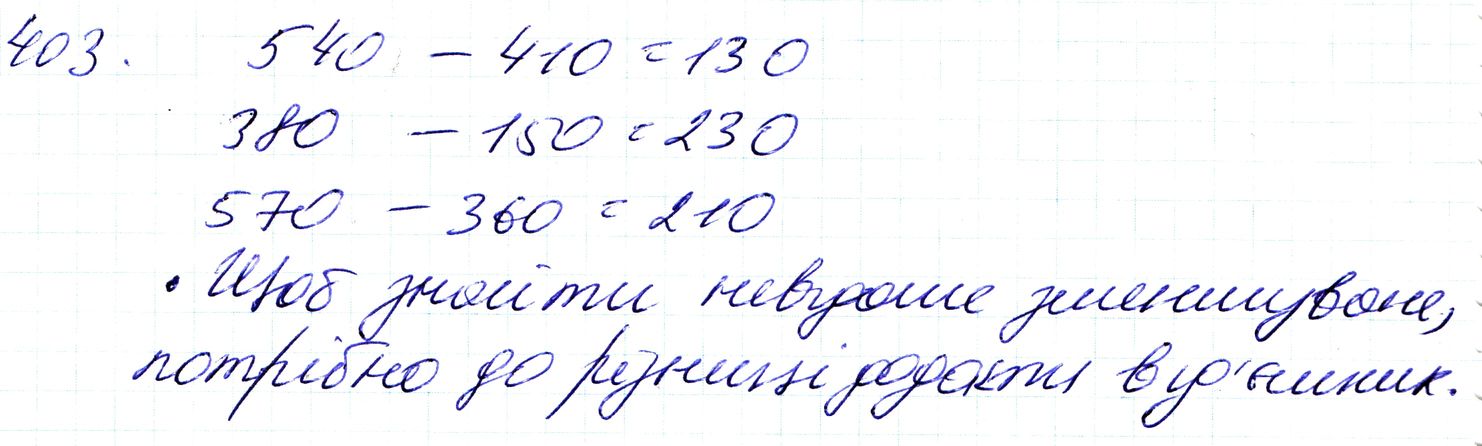 403. 540 - 410 = 130
380 - 150 = 230
570 - 360 = 210
• Щоб знайти невідоме зменшуване,
потрібно до різниці додати від'ємник.